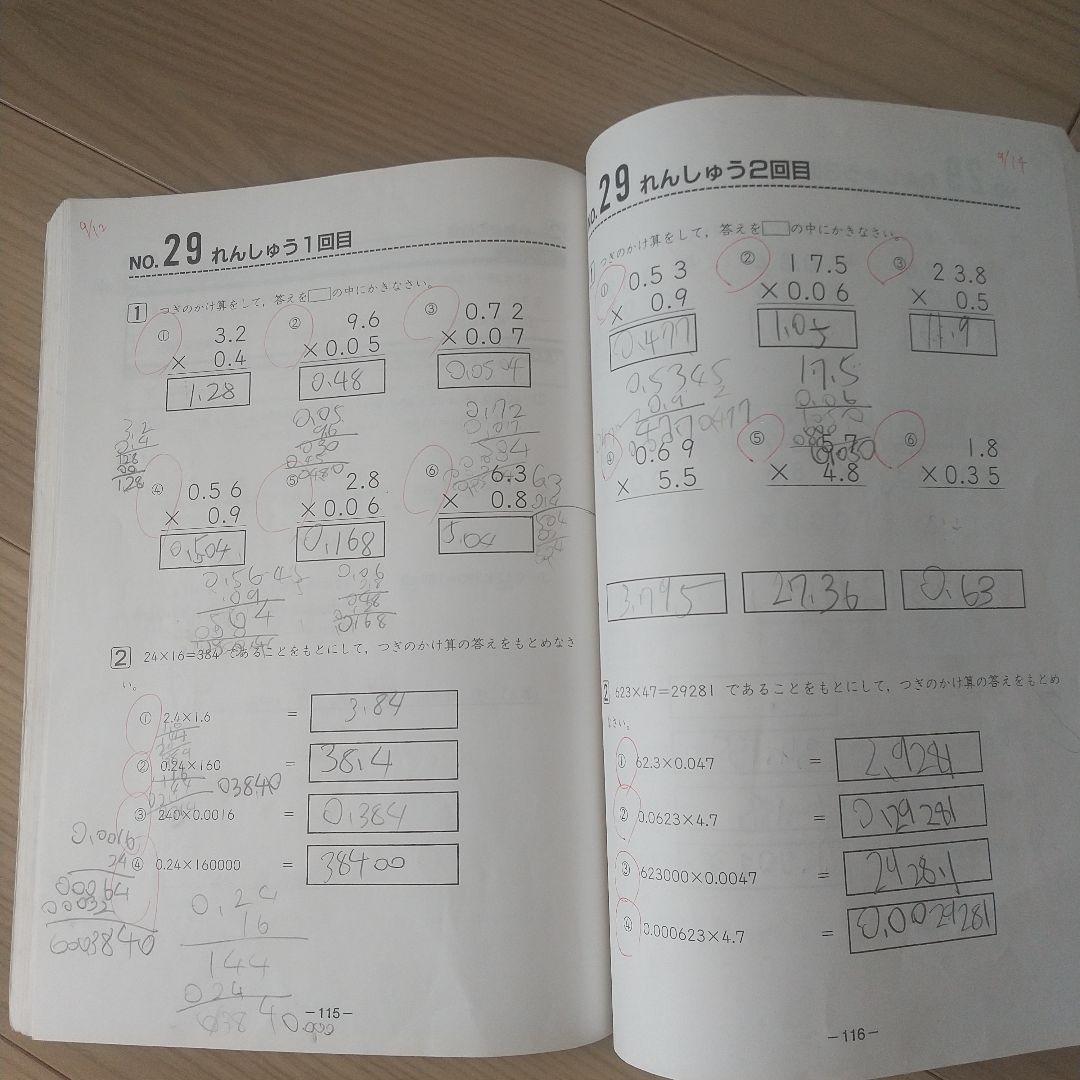 9/12
NO. 29 れんしゅう1回目
1 つぎのかけ算をして,答えを□の中にかきなさい。
① 3.2 × 0.4 1.28
② 9.6 × 0.05 0.48
③ 0.72 × 0.07 0.0504
3.2
0.4
128
00
128
0.05
96
030
045
0480
0.72
0.07
④ 0.56 × 0.9 0.504
⑤ 2.8 × 0.06 0.168
⑥ 6.3 × 0.8 5.04
2 24×16=384 であることをもとにして,つぎのかけ算の答えをもとめなさ
い。
① 2.4×1.6 = 3.84
② 0.24×160 = 38.4
03840
③ 240×0.0016 = 0.384
④ 0.24×160000 = 38400
0.0016
24
00064
00032
0003840
0.24
16
144
024
−115−
9/14
NO. 29 れんしゅう2回目
1 つぎのかけ算をして,答えを□の中にかきなさい。
① 0.53 × 0.9 0.477
② 17.5 × 0.06 1.05
③ 23.8 × 0.5 11.9
17.5
0.06
④ 0.69 × 5.5 3.795
⑤ 5.7 × 4.8 27.36
⑥ 1.8 × 0.35 0.63
2 623×47=29281 であることをもとにして,つぎのかけ算の答えをもとめ
なさい。
① 62.3×0.047 = 2.9281
② 0.0623×4.7 = 0.29281
③ 623000×0.0047 = 2928.1
④ 0.000623×4.7 = 0.0029281
−116−